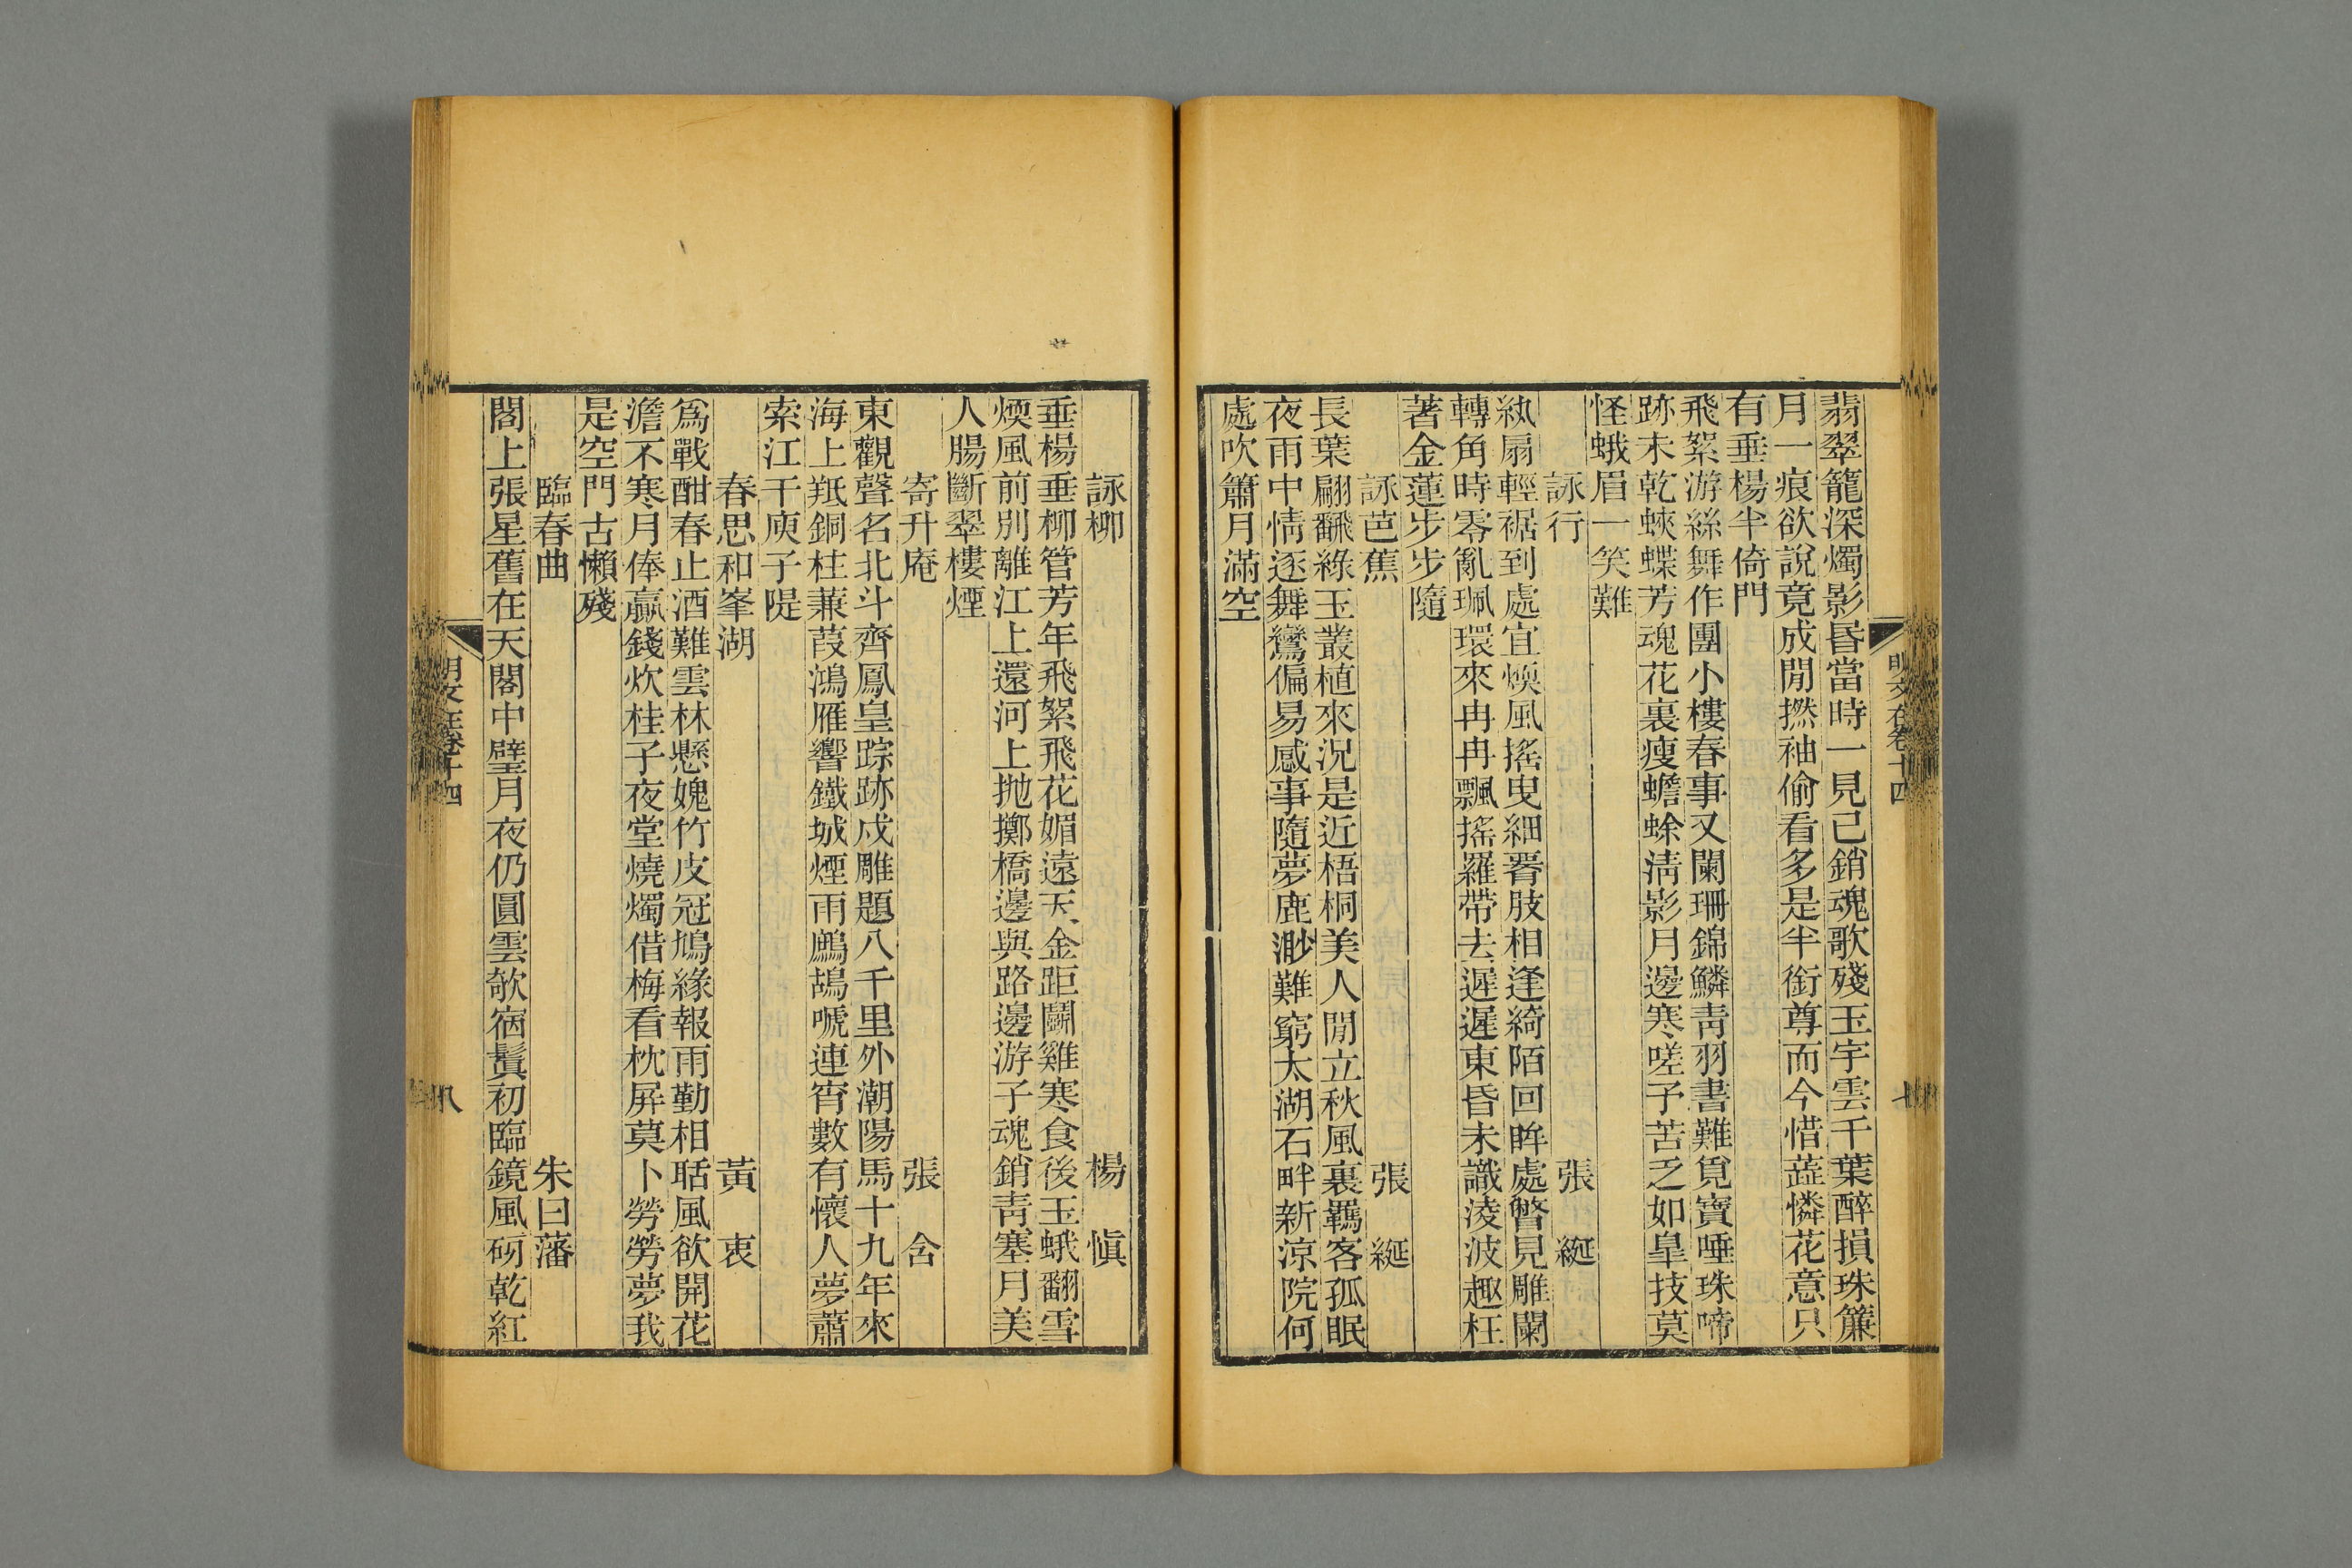 翡翠籠深燭影昏當時一見已銷魂歌殘玉宇雲千葉醉損珠簾
月一痕欲說竟成閒撚袖偷看多是半銜尊而今惜蕋憐花意只
有垂楊半倚門
飛絮游絲舞作團小樓春事又闌珊錦鱗靑羽書難覓寶唾珠啼
跡未乾蛺蝶芳魂花裏瘦蟾蜍淸影月邊寒嗟予苦乏如皐技莫
怪蛾眉一笑難
詠行　張綖
紈扇輕裾到處宜煗風搖曳細腎肢相逢綺陌回眸處瞥見雕闌
轉角時零亂珮環來冉冉飄搖羅帶去遲遲東昏未識淩波趣枉
著金蓮步步隨
詠芭蕉　張綖
長葉翩翻綠玉叢植來況是近梧桐美人閒立秋風裏羈客孤眠
夜雨中情逐舞鸞偏易感事隨夢鹿渺難窮太湖石畔新涼院何
處吹簫月滿空
明文在卷十四
詠柳　楊愼
垂楊垂柳管芳年飛絮飛花媚遠天金距鬭雞寒食後玉蛾翻雪
煗風前別離江上還河上抛擲橋邊與路邊游子魂銷靑塞月美
人腸斷翠樓煙
寄升庵　張含
東觀聲名北斗齊鳳皇踪跡戍雕題八千里外潮陽馬十九年來
海上羝銅柱蒹葭鴻雁響鐵城煙雨鷓鴣嗁連宵數有懷人夢蕭
索江干庾子隄
春思和峯湖　黃衷
爲戰酣春止酒難雲林懸媿竹皮冠鳩緣報雨勤相聒風欲開花
澹不寒月俸贏錢炊桂子夜堂燒燭借梅看枕屛莫卜勞勞夢我
是空門古懶殘
臨春曲　朱曰藩
閣上張星舊在天閣中璧月夜仍圓雲欹宿鬢初臨鏡風砑乾紅
明文在卷十四
八